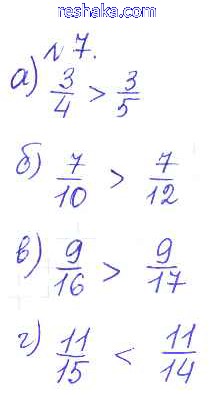 reshaka.com
№ 7.
а) 3/4 > 3/5
б) 7/10 > 7/12
в) 9/16 > 9/17
г) 11/15 < 11/14